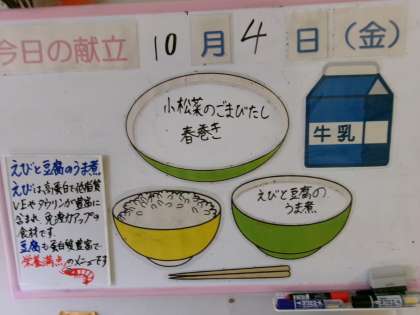 今日の献立 10月4日(金)
小松菜のごまびたし
春巻き
牛乳
えびと豆腐の
うま煮
えびと豆腐のうま煮
えびは高蛋白で低脂質
V.Eやタウリンが豊富に
含まれ 免疫力アップの
食材です
豆腐も蛋白質豊富で
栄養満点のメニューです